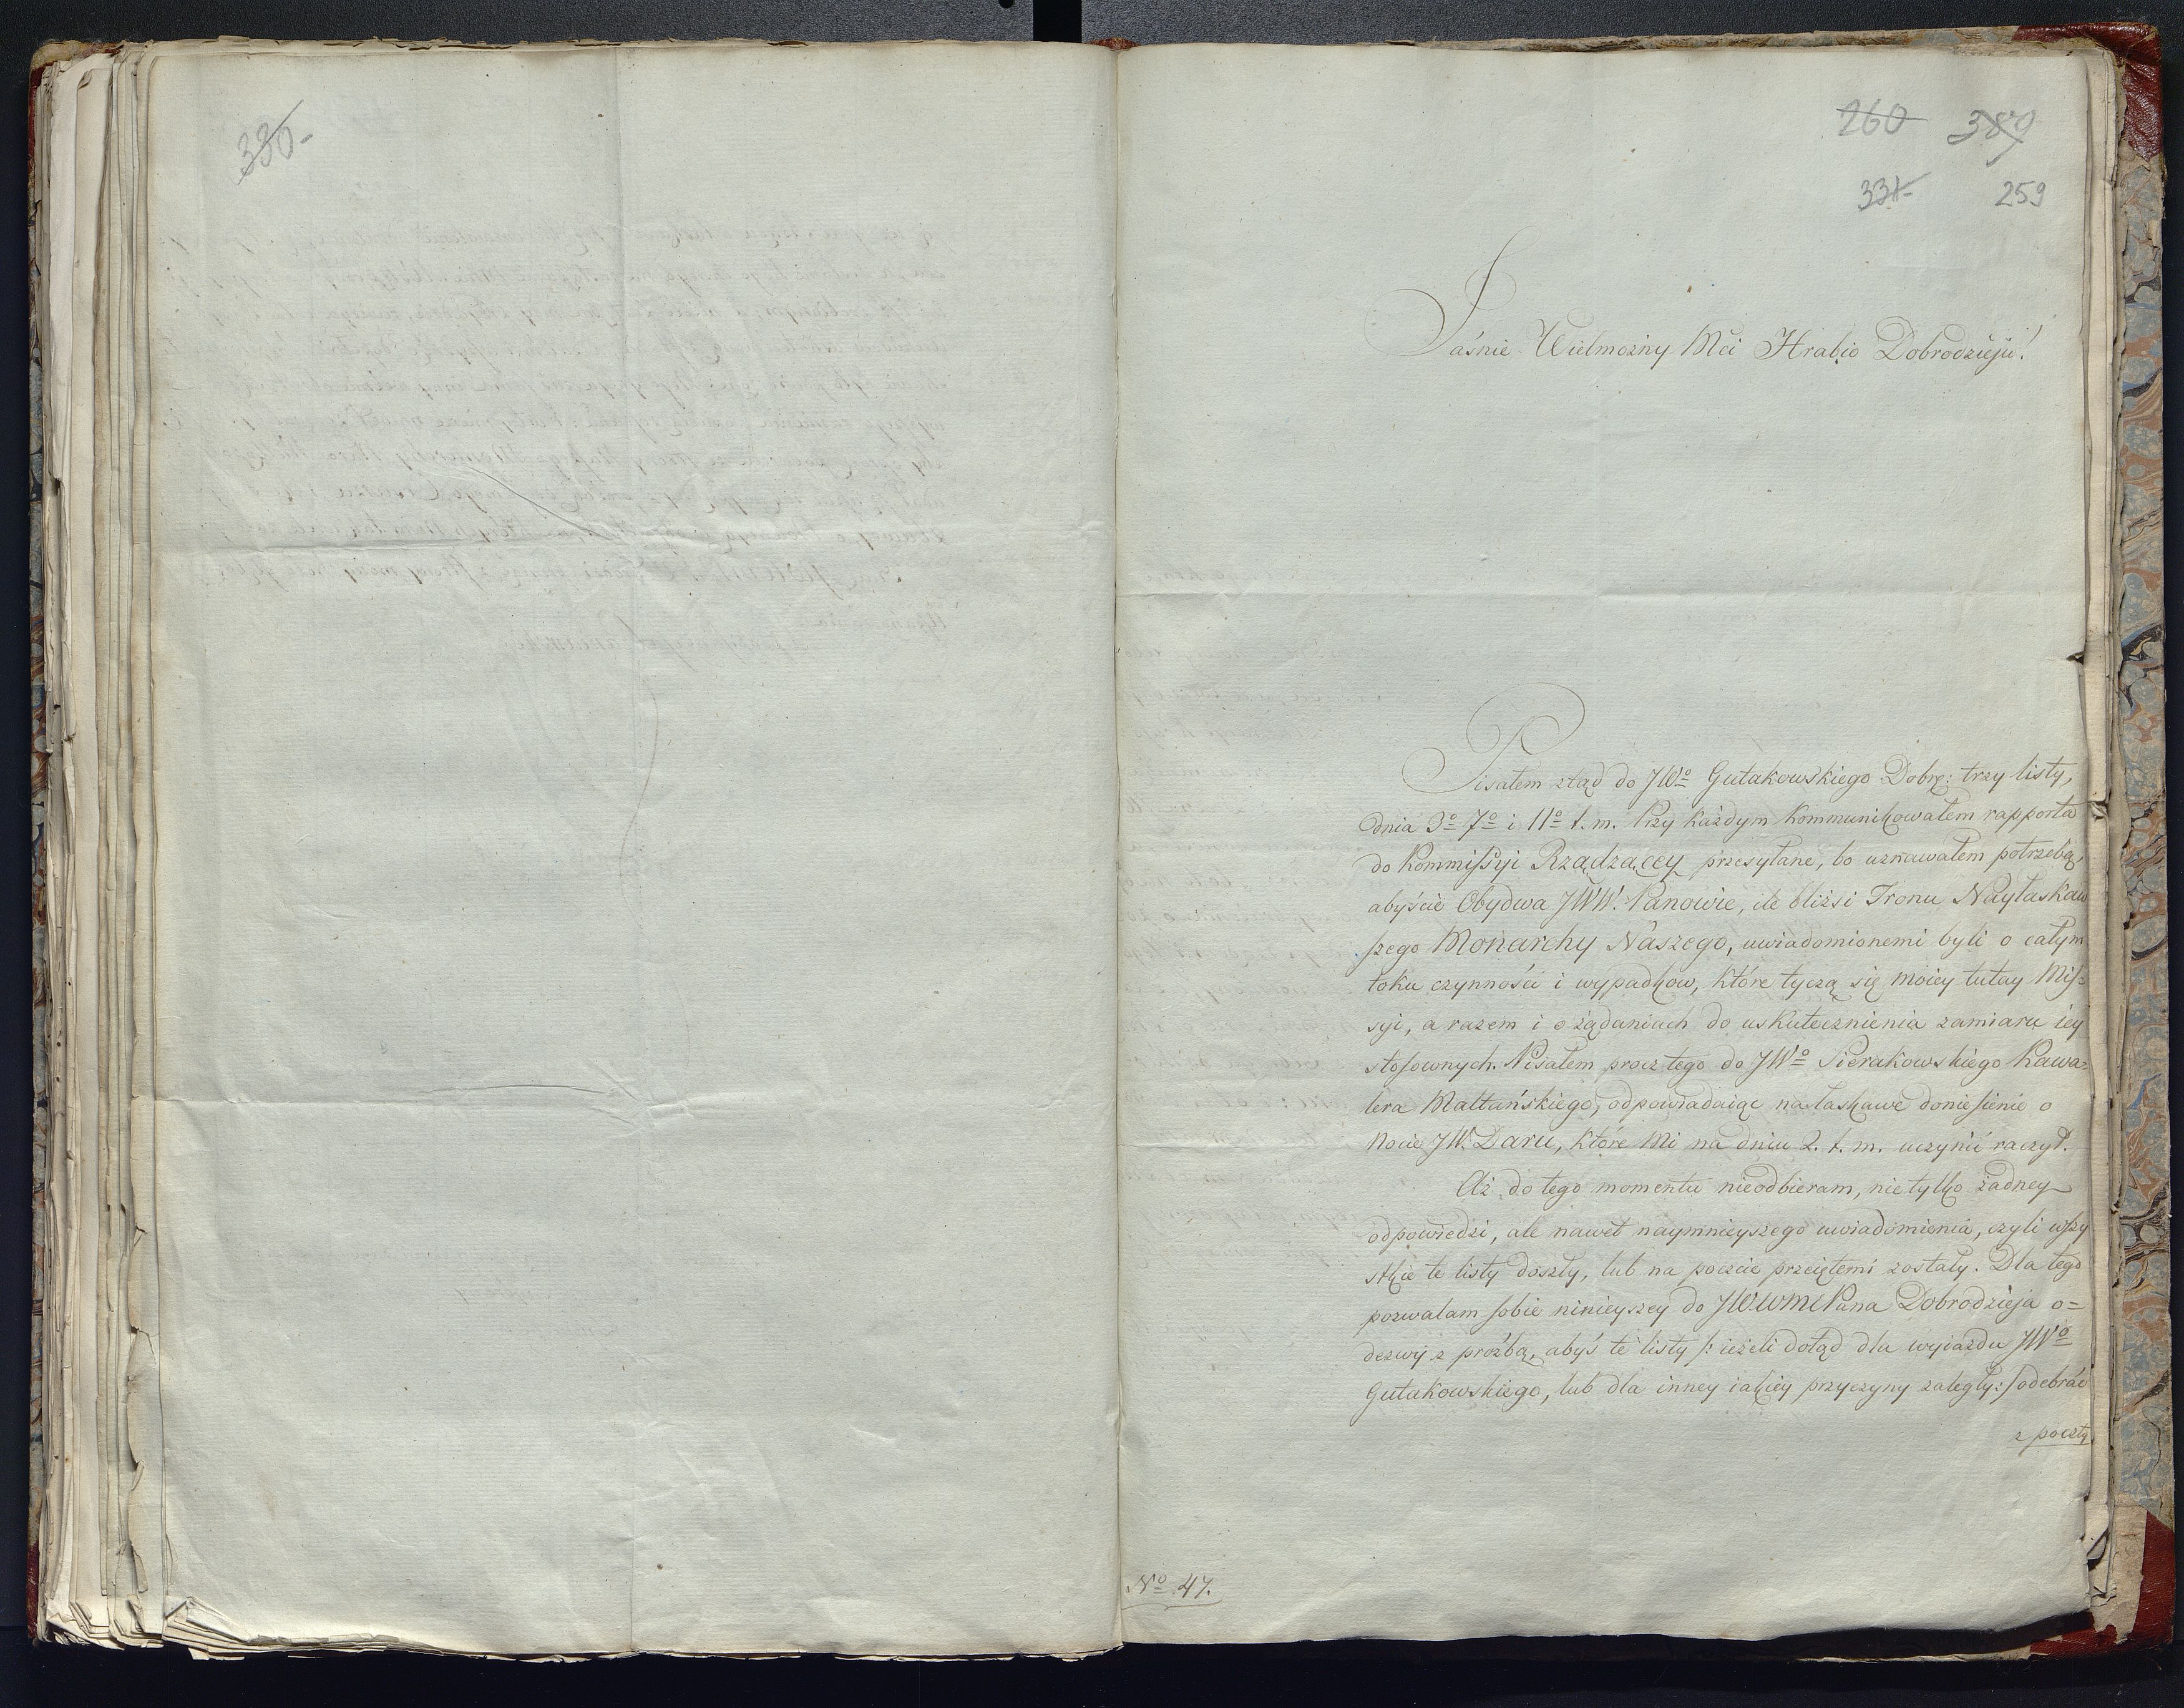 330
260 389
331 259
Jaśnie Wielmożny Mci Hrabio Dobrodzieju!
Pisałem ztąd do JWo Gutakowskiego Dobrę: trzy listy,
dnia 3o 7o i 11o t. m. Przy każdym kommunikowałem rapporta
do Kommissyi Rządzącey przesyłane, bo uznawałem potrzebą,
abyście Obydwa JWW. Panowie, ile bliżsi Tronu Nayłaskaw
szego Monarchy Naszego, uwiadomionemi byli o całym
toku czynności i wypadkow, które tyczą się moiey tutay Mis=
syi, a razem i o żądaniach do uskutecznienia zamiaru iey
stosownych. Pisałem procz tego do JWo Sierakowskiego Kawa=
lera Maltańskiego, odpowiadaiąc na łaskawe doniesienie o
Nocie JW. Daru, które Mi na dniu 2. t. m. uczynić raczył.
Aż do tego momentu nieodbieram, nietylko żadney
odpowiedzi, ale nawet naymnieyszego uwiadomienia, czyli wszy
stkie te listy doszły, lub na poczcie przeiętemi zostały. Dla tego
pozwalam sobie ninieyszey do JWWMPana Dobrodzieja o=
dezwy z prożbą, abyś te listy /: ieżeli dotąd dla wyiazdu JWo
Gutakowskiego, lub dla inney iakiey przyczyny zaległy :/ odebrać
z poczty
No 47.